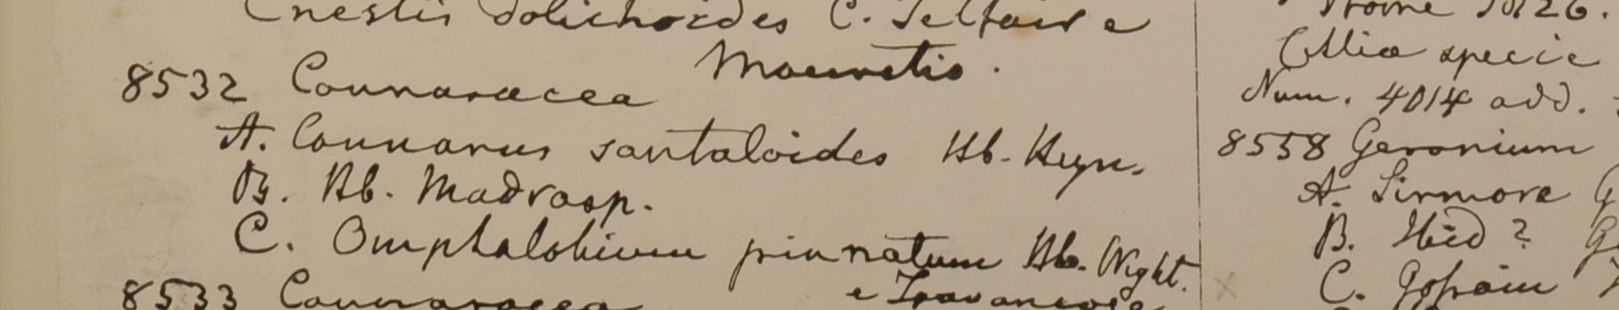 Cnestis dolichoides C. Telfair e
Mauritio.
8532 Connaracea
A. Connarus santaloides Hb. Heyn.
B. Hb. Madrasp.
C. Omphalobium pinnatum Hb. Wight.
8533 Connaracea e Travancore
Num. 4014 add.
8558 Geranium
A. Sirmore G
B. Ibid? G
C. Gosain